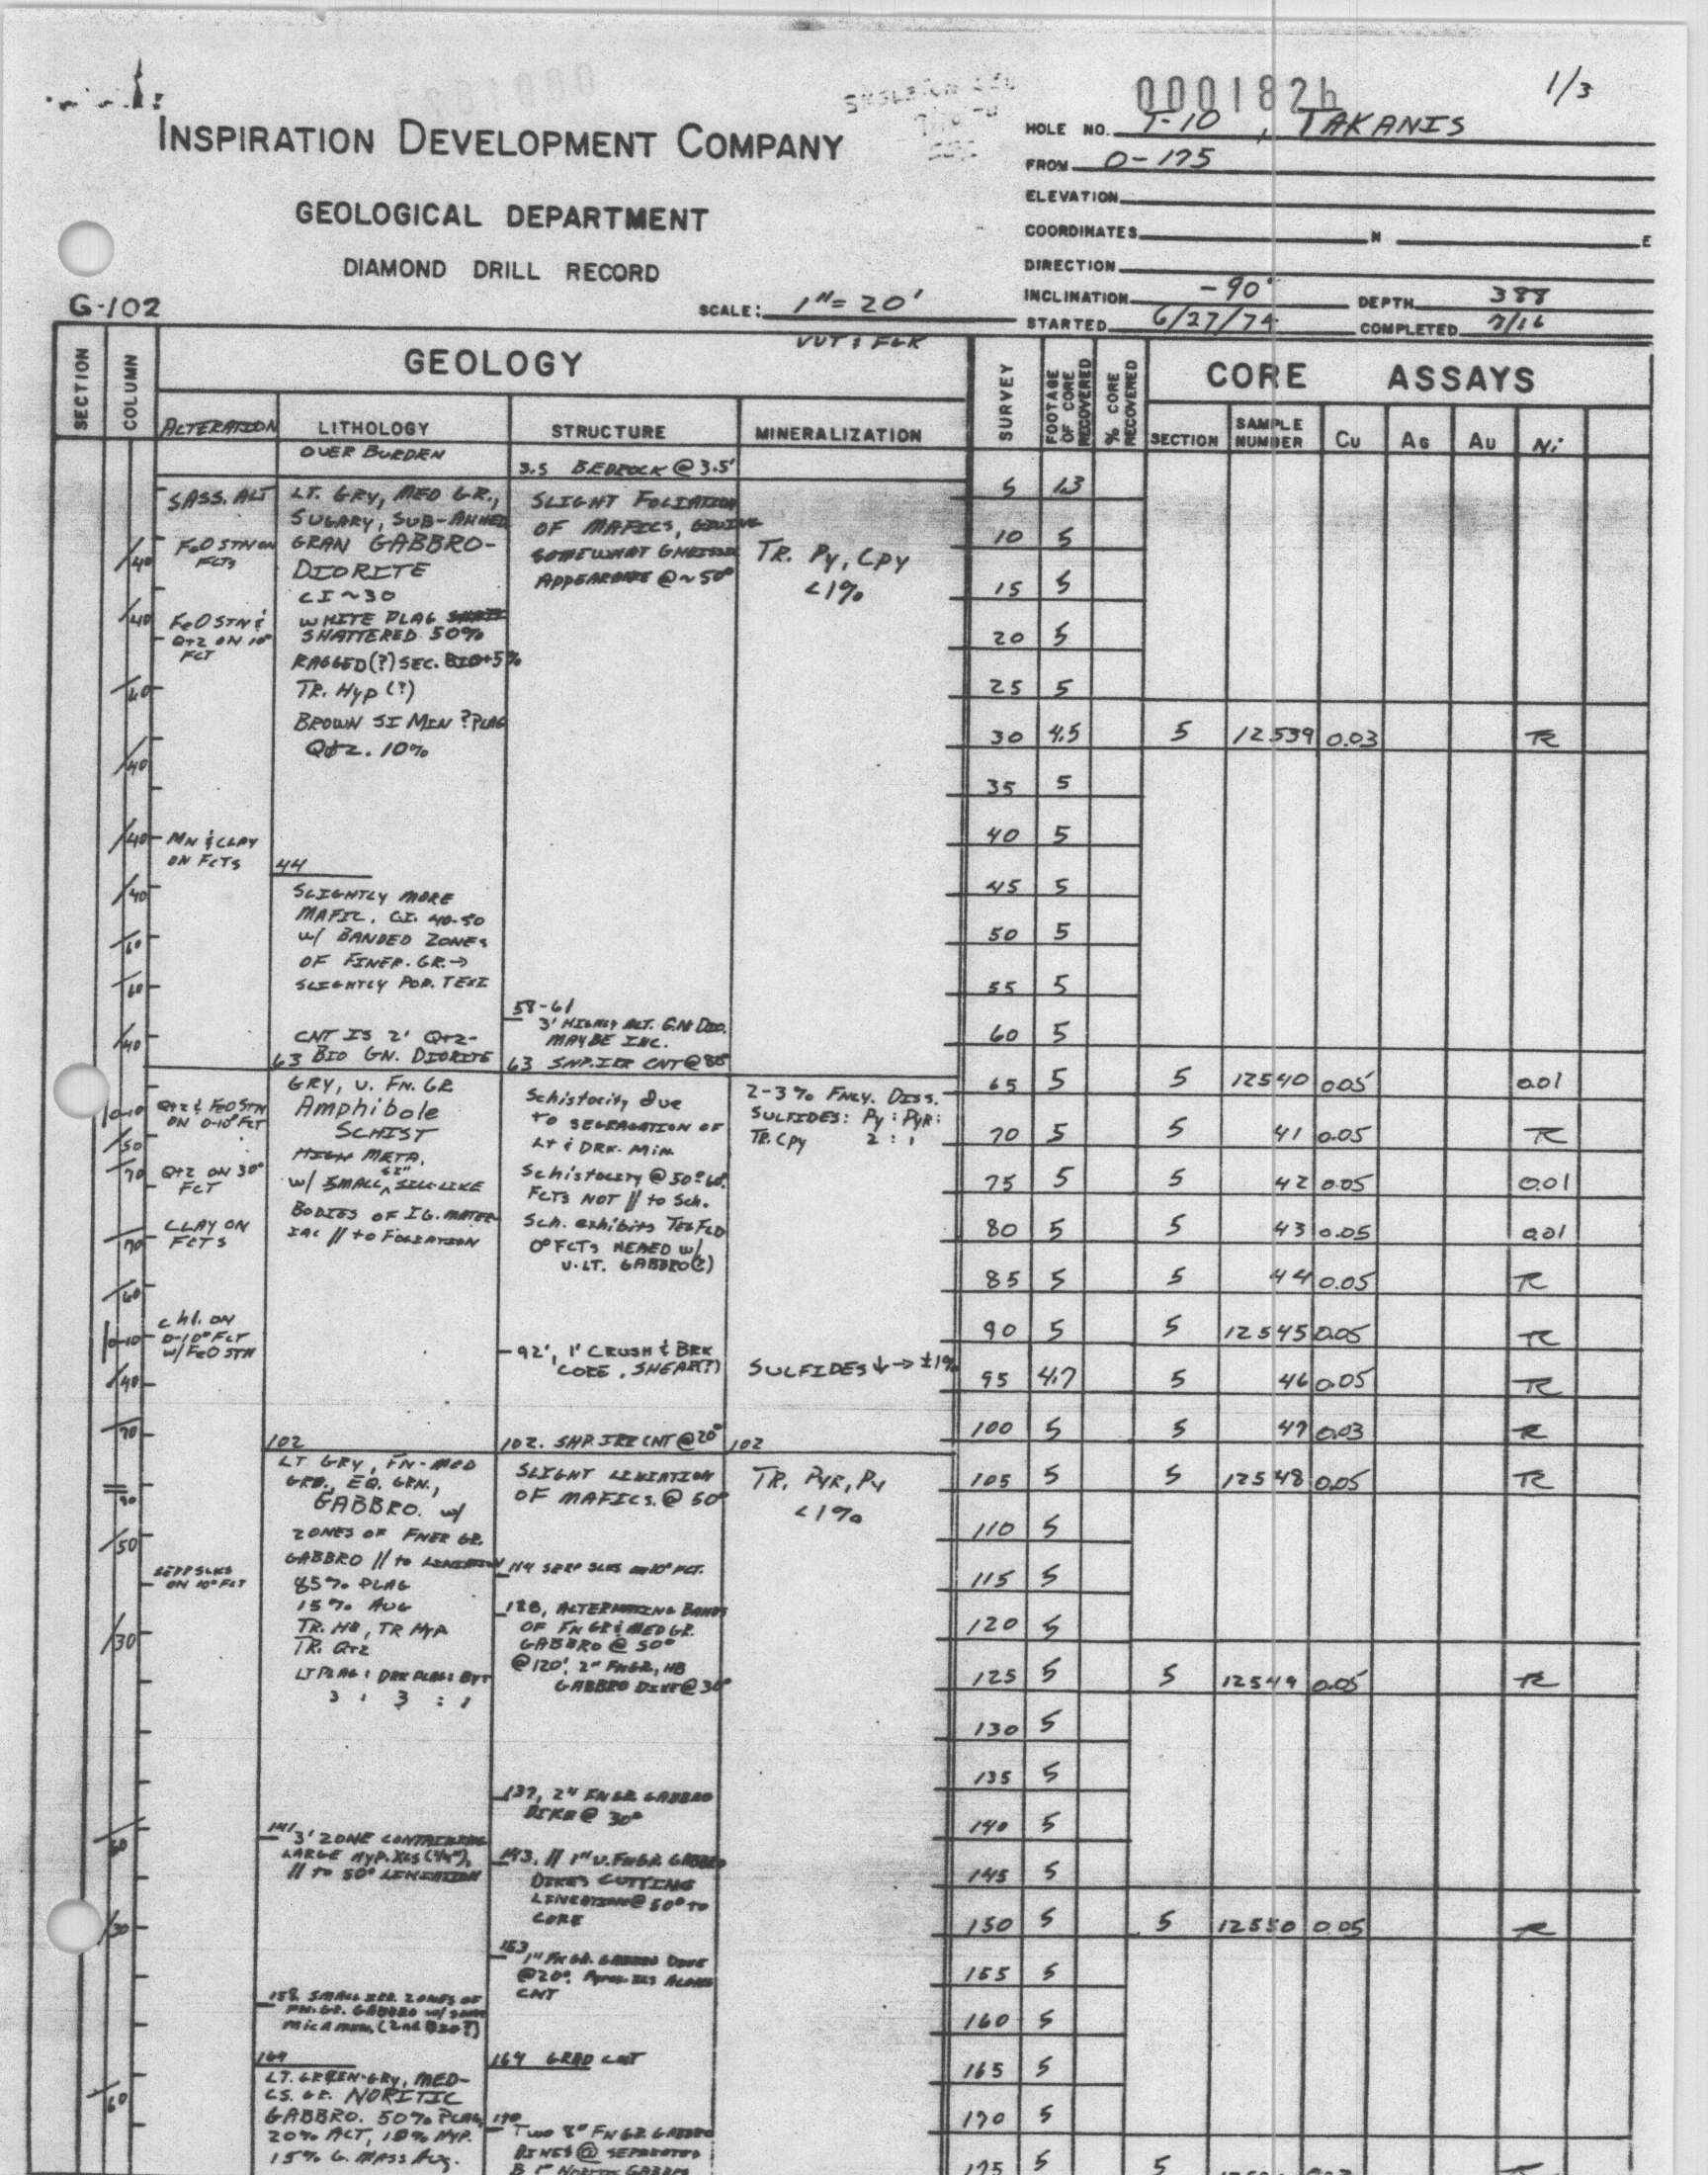 0001826
1/3
INSPIRATION DEVELOPMENT COMPANY
GEOLOGICAL DEPARTMENT
DIAMOND DRILL RECORD
G-102
SCALE: 1"= 20'
HOLE NO. T-10, TAKANIS
FROM 0-175
ELEVATION
COORDINATES N E
DIRECTION
INCLINATION -90° DEPTH 388
STARTED 6/27/74 COMPLETED 7/16
SECTION
COLUMN
GEOLOGY
ALTERATION
LITHOLOGY
STRUCTURE
MINERALIZATION
SURVEY
FOOTAGE OF CORE RECOVERED
% CORE RECOVERED
CORE ASSAYS
SECTION
SAMPLE NUMBER
Cu
AG
AU
Ni
SASS. ALT
FeO STN ON
FCTS
FeO STN &
QTZ ON 10°
FCT
MN & CLAY
ON FCTS
QTZ & FEO STN
ON 0-10° FCT
QTZ ON 30°
FCT
CLAY ON
FCTS
chl. ON
0-10° FCT
W/ FEO STN
SERP SLKS
ON 10° FCT
OVER BURDEN
LT. GRY, MED GR.,
SUGARY, SUB-
GRAN GABBRO-
DIORITE
CI ~30
WHITE PLAG
SHATTERED 50%
RAGGED(?) SEC. BIO+5%
TR. Hyp (?)
BROWN SI MIN ? PLAG
QTZ. 10%
44
SLIGHTLY MORE
MAFIC, C.I. 40-50
W/ BANDED ZONES
OF FINER. GR.→
SLIGHTLY POR. TEXT
CNT IS 2' QTZ-
63 BIO GN. DIORITE
GRY, V. FN. GR
Amphibole
SCHIST
HIGH META.
W/ SMALL, SILL-LIKE
BODIES OF IG. MATER-
IAL // to FOLIATION
102
LT GRY, FN-MED
GRD., EQ. GRN.,
GABBRO. W/
ZONES OF FNER GR.
GABBRO // to LINIATION
85% PLAG
15% AUG
TR. HB, TR HYP
TR. QTZ
LT PLAG : DRK PLAG : BYT
3 : 3 : 1
141
3' ZONE CONTAINING
LARGE HYP. XLS (1/4"),
// TO 50° LINIATION
158 SMALL IRR. ZONES OF
FN. GR. GABBRO W/ SOME
MICA MIN. (2nd BIO?)
164
LT. GREEN-GRY, MED-
CS. GR. NORITIC
GABBRO. 50% PLAG,
20% ACT, 10% HYP.
15% G. MASS Aug.
3.5 BEDROCK @ 3.5'
SLIGHT FOLIATION
OF MAFICS, GIVING
SOMEWHAT GNEISSIC
APPEARANCE @ ~50°
58-61
3' HIGHLY ALT. GN DIO.
MAYBE INC.
63 SHP. IRR CNT @ 80°
Schistocity due
to SEGRAGATION OF
Lt & DRK. Min.
Schistocity @ 50°-60°.
FCTS NOT // to Sch.
Sch. exhibits
0° FCTS HEALED W/
V. LT. GABBRO(?)
92', 1' CRUSH & BRK
CORE, SHEAR(?)
102. SHP. IRR CNT @ 20°
SLIGHT LINIATION
OF MAFICS. @ 50°
114 SERP SLKS ON 10° FCT.
ALTERNATING BANDS
OF FN GR & MED GR.
GABBRO @ 50°
@ 120', 2" FN GR, HB
GABBRO DIKE @ 30°
137, 2" FN GR GABBRO
DIKE @ 30°
143, // 1" V. FN GR. GABBRO
DIKES CUTTING
LINEATION @ 50° TO
CORE
153
1" FN GR. GABBRO DIKE
@ 20°. XLS ALONG
CNT
164 GRAD CNT
170
TWO 8" FN GR GABBRO
DIKES @ SEPARATED
TR. Py, Cpy
<1%
2-3% FNLY. DISS.
SULFIDES: Py : PYR :
TR. Cpy 2 : 1
SULFIDES ↓ → ±1%
102
TR. PYR, Py
<1%
5 1.3
10 5
15 5
20 5
25 5
30 4.5 5 12539 0.03 TR
35 5
40 5
45 5
50 5
55 5
60 5
65 5 5 12540 0.05 0.01
70 5 5 41 0.05 TR
75 5 5 42 0.05 0.01
80 5 5 43 0.05 0.01
85 5 5 44 0.05 TR
90 5 5 12545 0.05 TR
95 4.7 5 46 0.05 TR
100 5 5 47 0.03 TR
105 5 5 12548 0.05 TR
110 5
115 5
120 5
125 5 5 12549 0.05 TR
130 5
135 5
140 5
145 5
150 5 5 12550 0.05 TR
155 5
160 5
165 5
170 5
175 5 5